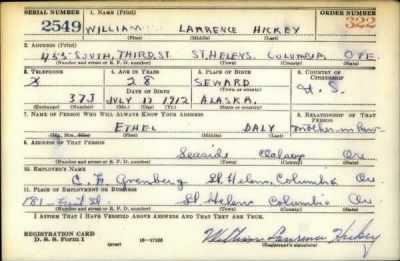 SERIAL NUMBER 1. NAME (Print) ORDER NUMBER
2549 WILLIAM LARRENCE HICKEY 322
(First) (Middle) (Last)
2. ADDRESS (Print)
455 SOUTH, THIRD, ST. ST, HELENS, COLUMBIA, ORE.
(Number and street or R. F. D. number) (Town) (County) (State)
3. TELEPHONE 4. AGE IN YEARS 5. PLACE OF BIRTH 6. COUNTRY OF CITIZENSHIP
X 28 SEWARD U. S.
DATE OF BIRTH (Town or county)
37J JULY 17 1912 ALASKA,
(Mo.) (Day) (Yr.) (State or country)
7. NAME OF PERSON WHO WILL ALWAYS KNOW YOUR ADDRESS 8. RELATIONSHIP OF THAT PERSON
ETHEL DALY Mother in Law
(Mr., Mrs., Miss) (First) (Middle) (Last)
9. ADDRESS OF THAT PERSON
Seaside Clatsop Ore
(Number and street or R. F. D. number) (Town) (County) (State)
10. EMPLOYER'S NAME
C. St Helens, Columbia Ore
11. PLACE OF EMPLOYMENT OR BUSINESS
181 St St Helens Columbia Ore
(Number and street or R. F. D. number) (Town) (County) (State)
I AFFIRM THAT I HAVE VERIFIED ABOVE ANSWERS AND THAT THEY ARE TRUE.
REGISTRATION CARD
D. S. S. Form 1 William Lawrence Hickey
(over) (Registrant's signature)